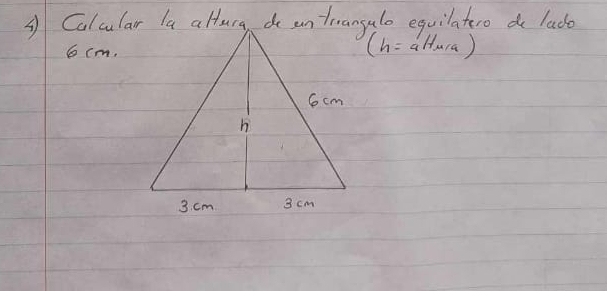 4) Calcular la altura de un triangulo equilatero de lado
6 cm. (h= altura)
6 cm
h
3 cm 3 cm